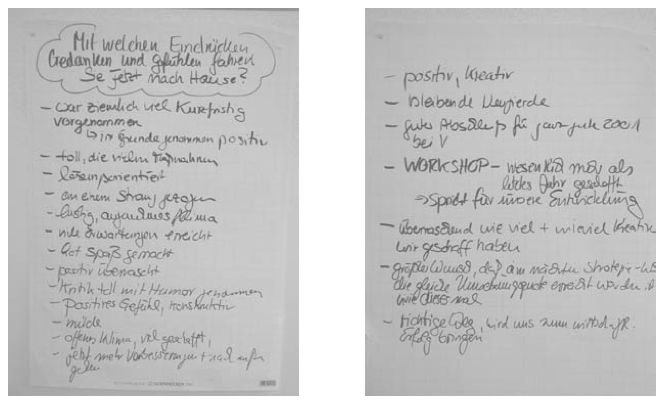 Mit welchen Eindrücken
Gedanken und Gefühlen fahren
Sie jetzt nach Hause?
- war ziemlich viel kurzfristig
vorgenommen
↳ im Grunde genommen positiv
- toll, die vielen Maßnahmen
- lösungsorientiert
- an einem Strang gezogen
- lustig, angenehmes Klima
- viele Erwartungen erreicht
- hat Spaß gemacht
- positiv überrascht
- Kritik toll mit Humor genommen
- positives Gefühl, konstruktiv
- müde
- offenes Klima, viel geschafft,
- jetzt mehr Verbesserungen + nach außen
gehen
- positiv, Kreativ
- bleibende Neugierde
- guter Abschluß für 2001
bei V
- WORKSHOP - wesentlich mehr als
letztes Jahr geschafft
⇒ Spricht für unsere Entwicklung
- überraschend wie viel + wieviel Kreativ
wir geschafft haben
- großer Wunsch, daß am nächsten Strategie-
die gleiche Umsetzungsquote erreicht werden
wie diesmal
- richtige Weg, wird uns zum
Erfolg bringen